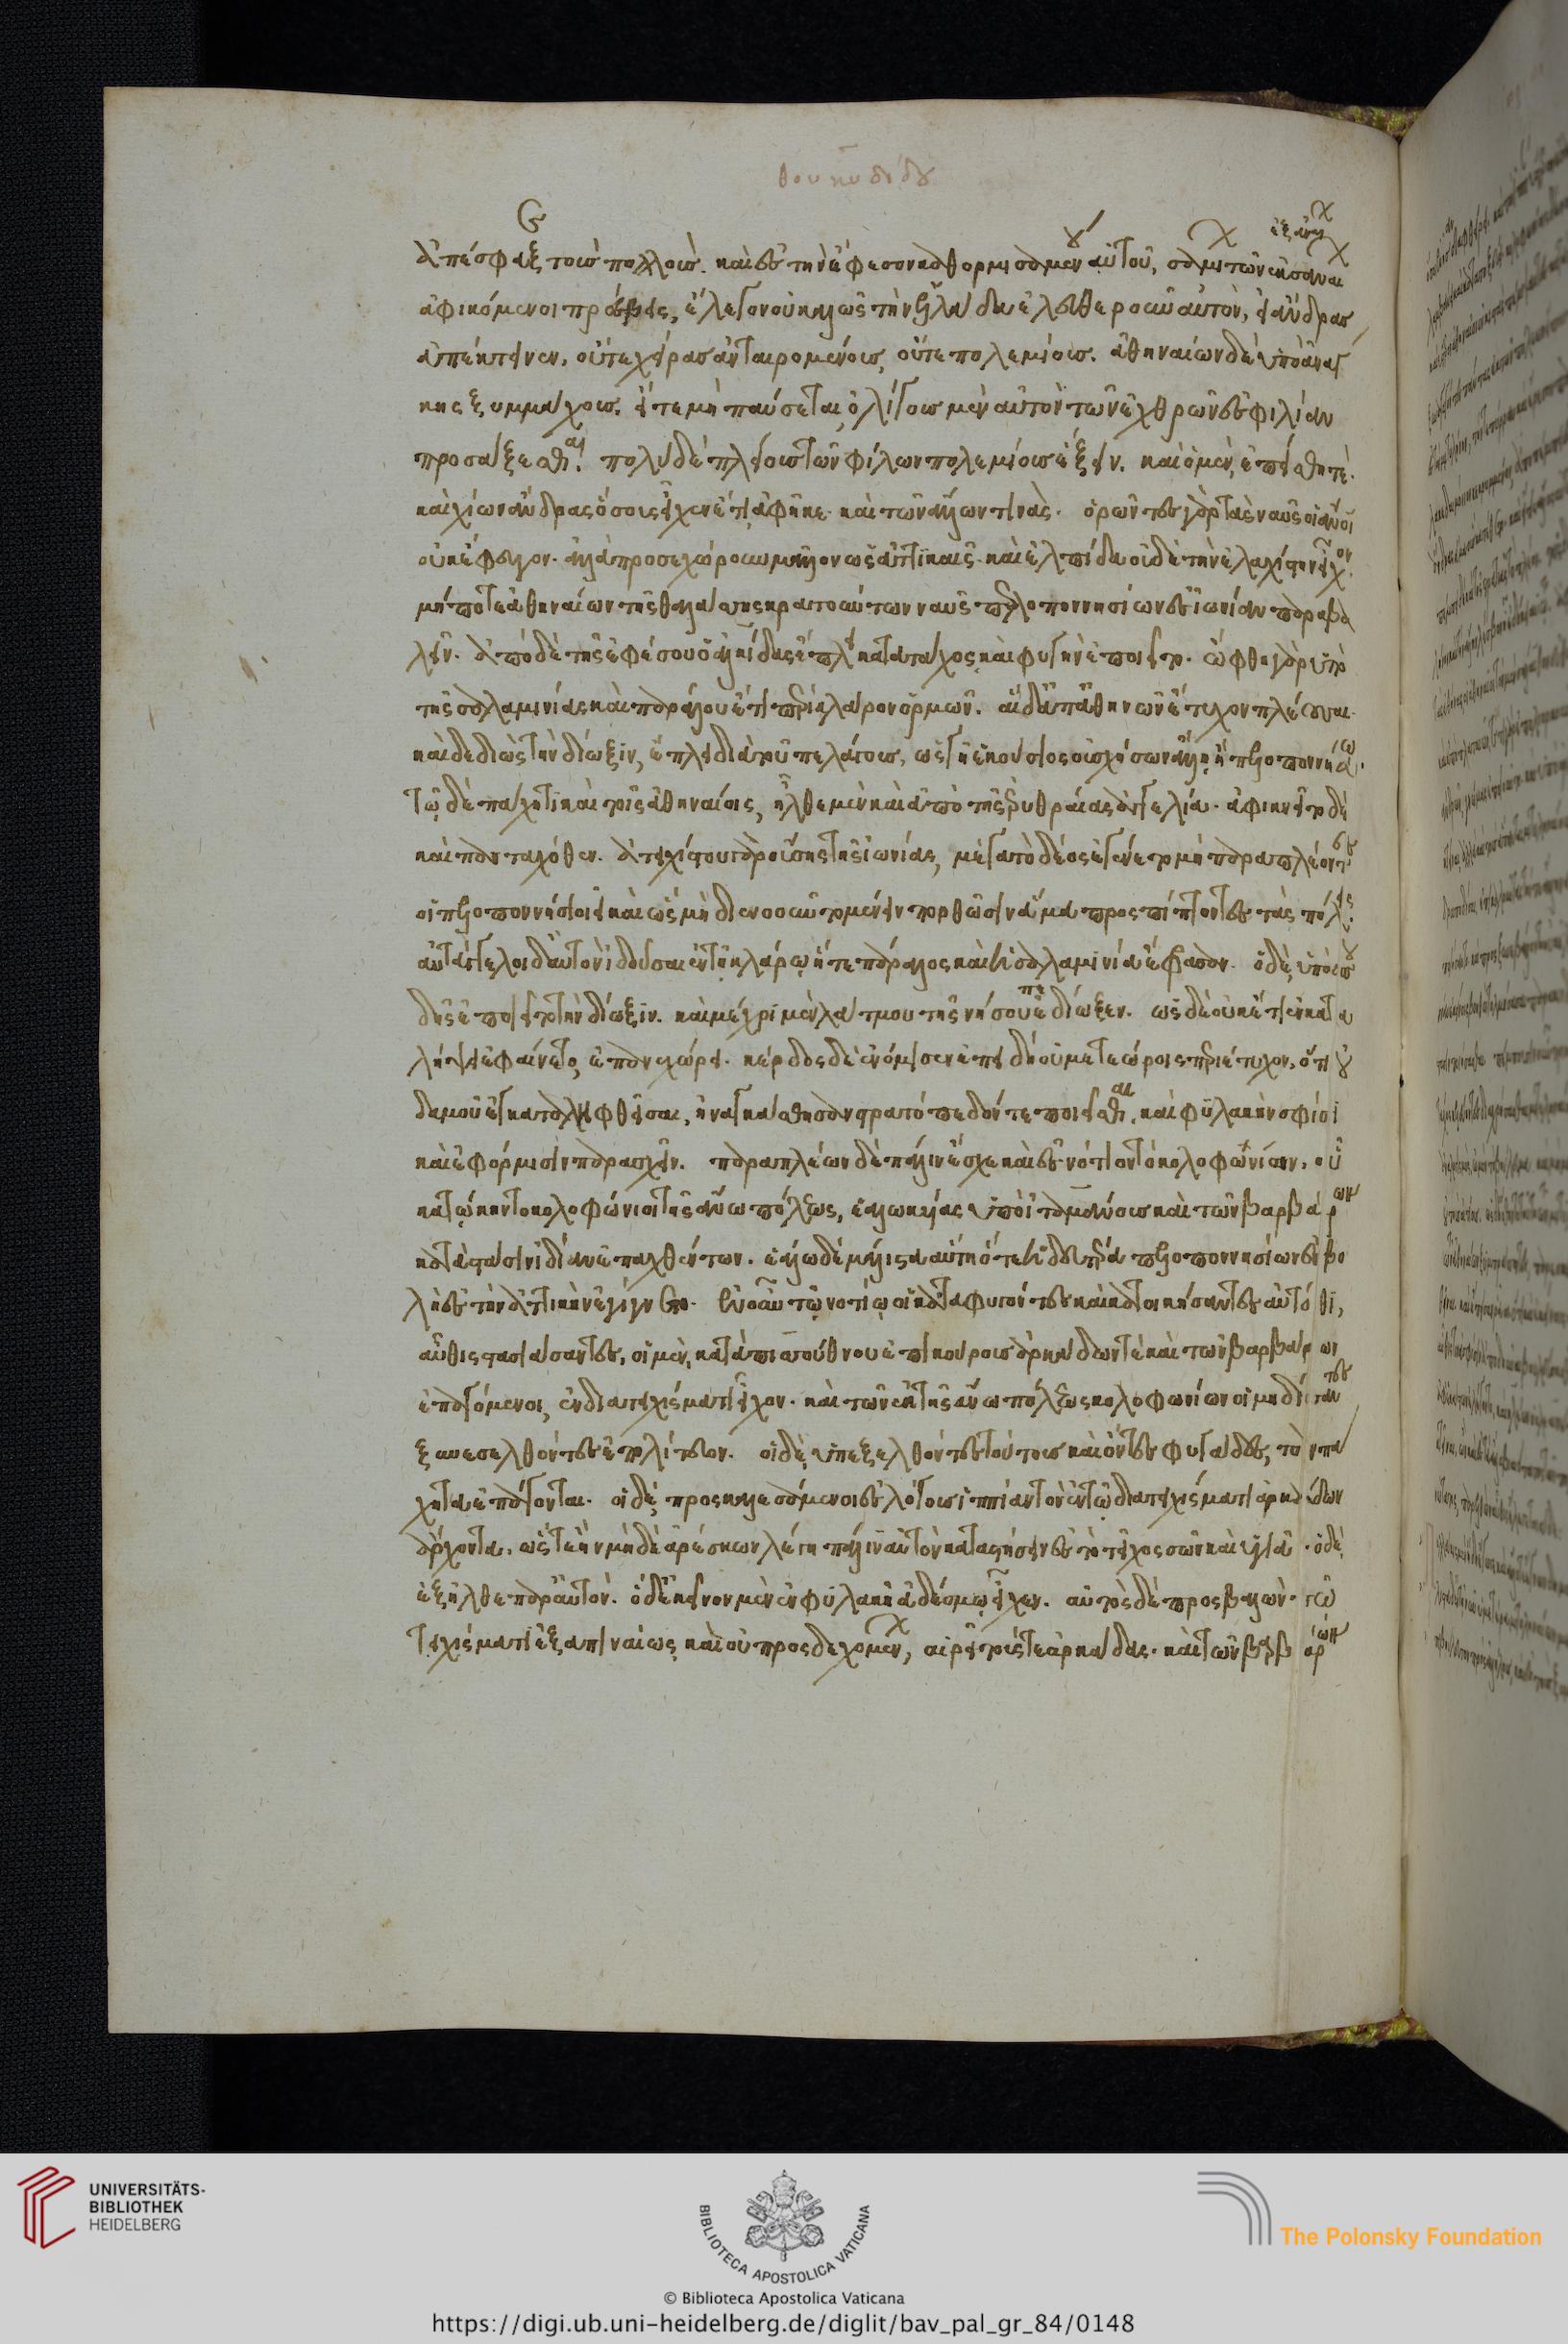 θουκυδίδου
ἀπέσφαξε τοὺς πολλούς. καὶ ἐς τὴν ἔφεσον καθορμισαμένου αὐτοῦ, σαμίων τῶν ἐξ ἀναίων
ἀφικόμενοι πρέσβεις, ἔλεγον οὐ καλῶς τὴν ἑλλάδα ἐλευθεροῦν αὐτὸν, εἰ ἄνδρας
ἀπέκτεινεν, οὔτε χεῖρας ἀνταιρομένους, οὔτε πολεμίους. ἀθηναίων δὲ ὑπὸ ἀνάγ
κης ξυμμάχους. εἴ τε μὴ παύσεται, ὀλίγους μὲν αὐτὸν τῶν ἐχθρῶν ἐς φιλίαν
προσάξεσθαι. πολὺ δὲ πλείους τῶν φίλων πολεμίους ἕξειν. καὶ ὁ μὲν, ἐπείσθη τὲ.
καὶ χίων ἄνδρας ὅσους εἶχεν ἔτι ἀφῆκε. καὶ τῶν ἄλλων τινὰς. ὁρῶντες γὰρ τὰς ναῦς οἱ ἄνοι
οὐκ ἔφευγον. ἀλλὰ προσεχώρουν μᾶλλον ὡς ἀττικαῖς. καὶ ἐλπίδα οὐδὲ τὴν ἐλαχίστην εἶχον.
μή ποτε ἀθηναίων τῆς θαλάσσης κρατούντων ναῦς πελοποννησίων ἐς ἰωνίαν παραβα
λεῖν. ἀπὸ δὲ τῆς ἐφέσου ὁ ἀλκίδας ἔπλει κατὰ τάχος καὶ φυγὴν ἐποιεῖτο. ὤφθη γὰρ ὑπὸ
τῆς σαλαμινίας καὶ παράλου ἔτι περὶ κλάρον ὁρμῶν. αἱ δ' ἀπ' ἀθηνῶν ἔτυχον πλέουσαι.
καὶ δεδιὼς τὴν δίωξιν, ἔπλει διὰ τοῦ πελάγους, ὡς γῆ ἑκούσιος οὐ σχήσων ἄλλῃ ἢ πελοποννήσω.
τῷ δὲ πάχητι καὶ τοῖς ἀθηναίοις, ἦλθε μὲν καὶ ἀπὸ τῆς ἐρυθραίας ἀγγελία. ἀφικνεῖτο δὲ
καὶ πανταχόθεν. ἀτειχίστου γὰρ οὔσης τῆς ἰωνίας, μέγα τὸ δέος ἐγένετο μὴ παραπλέοντες
οἱ πελοποννήσιοι εἰ καὶ ὣς μὴ διενοοῦντο μένειν πορθῶσιν ἅμα προσπίπτοντες τὰς πόλεις.
αὐτάγγελοι δ' αὐτὸν ἰδοῦσαι ἐν τῇ κλάρῳ ἥ τε πάραλος καὶ ἡ σαλαμινία ἔφρασαν. ὁ δὲ, ὑπὸ σπου
δῆς ἐποιεῖτο τὴν δίωξιν. καὶ μέχρι μὲν λάτμου τῆς νήσου ἐπεδίωξεν. ὡς δὲ οὐκέτι ἐν κατα
λήψει ἐφαίνετο, ἐπανεχώρει. κέρδος δὲ ἐνόμισεν ἐπειδὴ οὐ μετεώροις περιέτυχον, ὅτι οὐ
δαμοῦ ἐγκαταληφθεῖσαι, ἠναγκάσθησαν στρατόπεδόν τε ποιεῖσθαι, καὶ φυλακὴν σφίσι
καὶ ἐφόρμισιν παρασχεῖν. παραπλέων δὲ πάλιν ἔσχε καὶ ἐς νότιον τὸ κολοφωνίων, οὗ
κατῴκηντο κολοφώνιοι τῆς ἄνω πόλεως, ἑαλωκυίας ὑπὸ ἰταμάνους καὶ τῶν βαρβάρων
κατὰ στάσιν ἰδίαν ἐπαχθέντων. ἑάλω δὲ μάλιστα αὕτη ὅτε ἡ δευτέρα πελοποννησίων ἐσβο
λὴ ἐς τὴν ἀττικὴν ἐγίγνετο. ἐν οὖν τῷ νοτίῳ οἱ καταφυγόντες καὶ κατοικήσαντες αὐτόθι,
αὖθις στασιάσαντες, οἱ μὲν, κατὰ πισσούθνου ἐπικούρους ἀρκάδων τὲ καὶ τῶν βαρβάρων
ἐπαγόμενοι, ἐν διατειχίσματι εἶχον. καὶ τῶν ἐκ τῆς ἄνω πόλεως κολοφωνίων οἱ μηδίσαντες
ξυνεσελθόντες ἐπολίτευον. οἱ δὲ, ὑπεξελθόντες τούτους καὶ ὄντες φυγάδες, τὸν πά
χητα ἐπάγονται. ὁ δὲ, προσκαλεσάμενος ἐς λόγους ἱππίαν τὸν ἐν τῷ διατειχίσματι ἀρκάδων
ἄρχοντα. ὥστε ἢν μηδὲν ἀρέσκων λέγῃ πάλιν αὐτὸν καταστήσειν ἐς τὸ τεῖχος σῶν καὶ ὑγιᾶ. ὁ δὲ,
ἐξῆλθε παρ' αὐτὸν. ὁ δ' ἐκεῖνον μὲν ἐν φυλακῇ ἀδέσμῳ εἶχεν. αὐτὸς δὲ προσβαλὼν τῷ
τειχίσματι ἐξαπιναίως καὶ οὐ προσδεχομένων, αἱρεῖ τούς τε ἀρκάδας. καὶ τῶν βαρβάρων
UNIVERSITÄTS-
BIBLIOTHEK
HEIDELBERG
BIBLIOTECA APOSTOLICA VATICANA
The Polonsky Foundation
© Biblioteca Apostolica Vaticana
https://digi.ub.uni-heidelberg.de/diglit/bav_pal_gr_84/0148